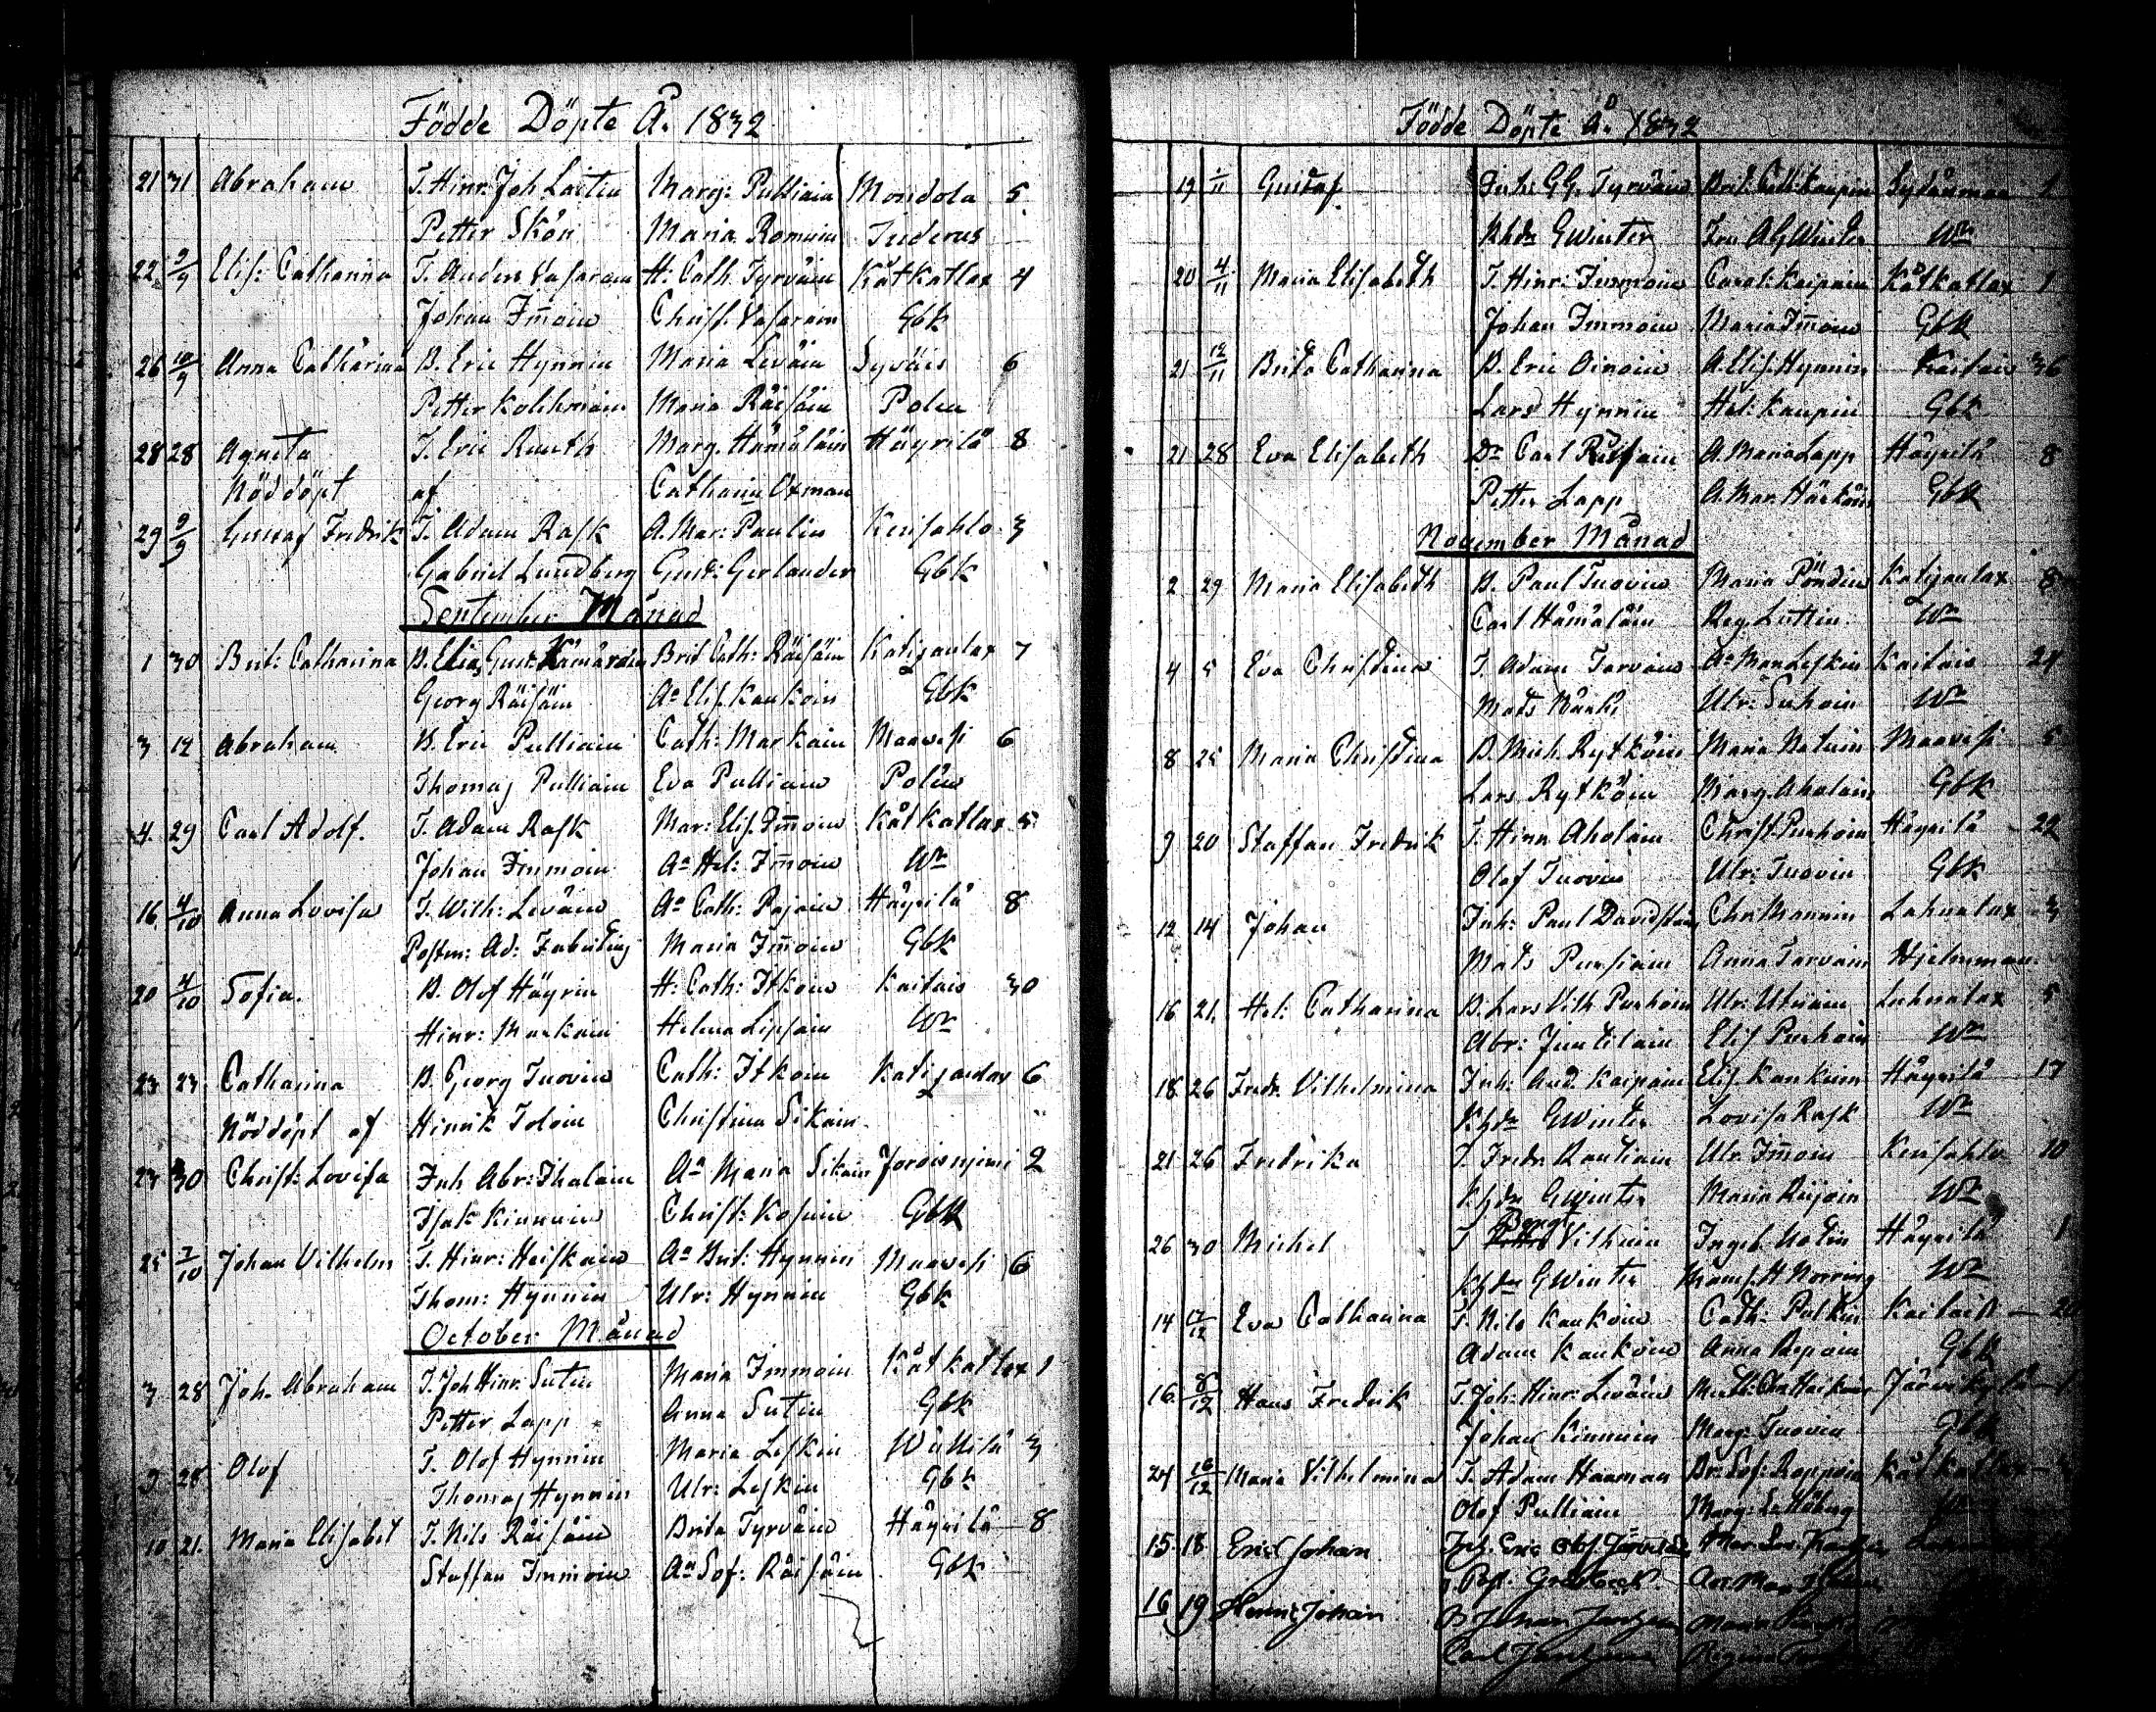 Födde Döpte Å. 1832
21 31 Abraham T. Hinr: Joh Marg: Pulliain Mondola 5
Petter Skön Maria Romuin
22 9/9 Elis: Catharina T. Anders Vasarain H: Cath. Tyrväin Kätkatlax 4
Johan Im̄oin Christ. Vasarain Gbk
26 10/9 Anna Catharina B. Eric Hynnin Maria Leväin Syväis 6
Petter Kolehmain Maria Räisäin Polen
28 28 Agneta T. Eric Rauth Marg. Hämäläin Häyrilä 8
Nöddöpt af Catharina Oxman
29 9/9 Gustaf Fredrik T. Adam Rask A. Mar: Paulin Kerisahlo 3
Gabriel Lundberg Gust: Gerlander Gbk
September Månad
1 30 Brit: Catharina B. Elias Gust. Brit Cath: Räisäin Katizanlax 7
Georg Räisäin Aa Elis. Kaukoin Gbk
3 12 Abraham B. Eric Pulliain Cath: Markain Maavesi 6
Thomas Pulliain Eva Pulliain Polen
4 29 Carl Adolf. T. Adam Rask Mar: Elis. Im̄oin Kätkatlax 5
Johan Immoin Aa Hel: Im̄oin Wn
16 4/10 Anna Lovisa T. Wilh: Leväin Aa Cath: Pajain Häyrilä 8
Postm: Ad: Maria Im̄oin Gbk
20 4/10 Sofia. B. Olof Häyrin H: Cath: Itkoin Kaitais 30
Hinr: Markain Helena Lipsain Wn
23 23 Catharina B. Georg Tuovin Cath: Itkoin Katizanlax 6
Nöddöpt af Hinrik Toloin Christina Sikain
23 30 Christ: Lovisa Inh Abr: Ihalain Aa Maria Sikain Joroisniemi 2
Isak Kinnuin Christ: Kosuin Gbk
25 7/10 Johan Vilhelm T. Hinr: Heiskain Aa Brit: Hynnin Maavesi 6
Thom: Hynnin Ulr: Hynnin Gbk
October Månad
3 28 Joh. Abraham T. Joh Hinr Sutin Maria Immoin Kätkatlax 1
Petter Lapp Anna Sutin Gbk
9 28 Olof T. Olof Hynnin Maria Leskin 3
Thomas Hynnin Ulr: Leskin Gbk
10 21. Maria Elisabet T. Nils Räisäin Brita Tyrväin Häyrilä 8
Staffan Immoin Aa Sof: Räisäin Gbk
Födde Döpte Åo 1832
19 1/11 Gustaf Inh: G G. Tyrväin Brit. Cath: Kaupin 1
Khdn G Winter Fru A G Winter Wn
20 4/11 Maria Elisabeth T. Hinr: Immoin Carol: Kaipain Kätkatlax 1
Johan Immoin Maria Im̄oin Gbk
21 12/11 Brita Catharina B. Eric Oinoin A. Elis. Hynnin Kaitais 36
Lars Hynnin Hel: Kaupin Gbk
21 28 Eva Elisabeth Dr Carl A. Maria Lapp Häyrilä 8
Petter Lapp A. Mar. Härköin Gbk
November Månad
2 29 Maria Elisabeth B. Paul Tuovin Maria Pöndin Katizanlax 8
Carl Hämäläin Reg. Luttin Wn
4 5 Eva Christina T. Adam Tarvain Aa Mar Leskin Kaitais 24
Mats Ulr: Suhoin Wn
8 25 Maria Christina B. Mich. Rytköin Maria Natuin Maavesi 5
Lars Rytköin Marg. Aholain Gbk
9 20 Staffan Fredrik T. Hinr Aholain Christ. Purhoin Häyrilä 22
Olof Tuovin Ulr: Tuovin Gbk
12 14 Johan Inh: Paul Davidstain Chr: Mannin Lahnalax 3
Mats Pursiain Anna Tarvain Hjelmman
16 21. Hel: Catharina B. Lars Vilh Purhoin Ulr: Utriain Lahnalax 5
Abr: Juutilain Elis Purhoin Wn
18 26 Fredr. Vilhelmina Inh: And. Kaipain Elis. Kaukoin Häyrilä 17
Khdn G Winter Lovisa Rask Wn
21 26 Fredrika T. Fredr. Rautiain Ulr Im̄oin Kerisahlo 10
Khdn G Winter Maria Wn
26 30 Michel T Bengt Vilhuin Ingeb. Häyrilä 1
Khdn G Winter Mams. H Norring Wn
14 17/12 Eva Catharina T. Nils Kaukoin Cath: Pulkin Kaitais
Adam Kaukoin Anna Repoin Gbk
16 8/12 Hans Fredrik T. Joh: Hinr: Leväin Järvikylä
Johan Kinnuin Marg: Tuovin Gbk
24 16/12 Maria Vilhelmina T. Adam Haaman Br: Sof: Roppoin Kätkatlax
Olof Pulliain Marg:
15 18 Eric Johan Inh. Eric Olof.
16 19 Henric Johan B Johan Maria
Carl Regina